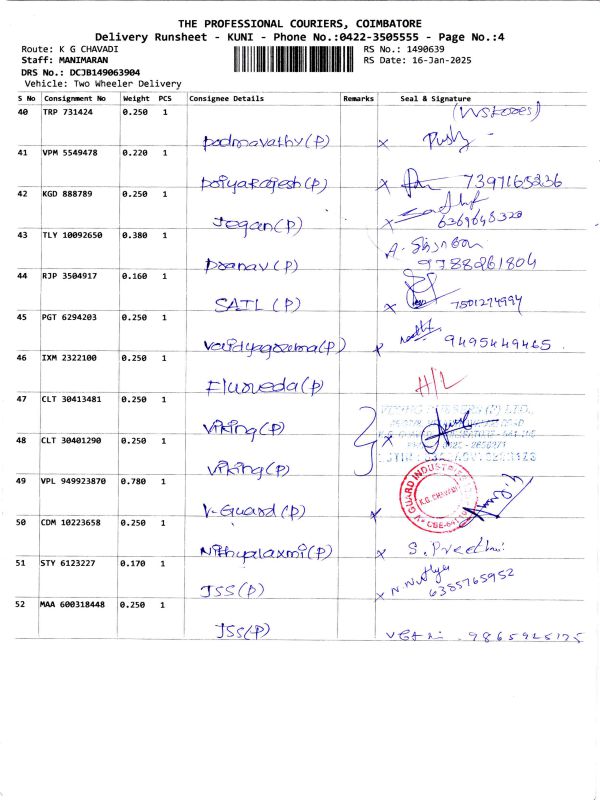 THE PROFESSIONAL COURIERS, COIMBATORE
Delivery Runsheet - KUNI - Phone No.:0422-3505555 - Page No.:4
Route: K G CHAVADI RS No.: 1490639
Staff: MANIMARAN RS Date: 16-Jan-2025
DRS No.: DCJB149063904
Vehicle: Two Wheeler Delivery
S No Consignment No Weight PCS Consignee Details Remarks Seal & Signature
40 TRP 731424 0.250 1
padmavathy(P) x
41 VPM 5549478 0.220 1
Poiyarajesh(P) x 7397165236
42 KGD 888789 0.250 1
Jegan(P) x 6369648320
43 TLY 10092650 0.380 1 A.
Pranav(P) 9788261804
44 RJP 3504917 0.160 1
SAIL (P) x 7501274994
45 PGT 6294203 0.250 1
(P) x 9495449465
46 IXM 2322100 0.250 1
(P) H/L
47 CLT 30413481 0.250 1
Viking(P)
48 CLT 30401290 0.250 1 x
Viking(P)
49 VPL 949923870 0.780 1 GUARD INDUSTRIES K.G. CHAVADI
V-Guard(P) x
50 CDM 10223658 0.250 1
Nithyalaxmi(P) x S. Preethi
51 STY 6123227 0.170 1
JSS(P) x N. Nithya 6385765952
52 MAA 600318448 0.250 1
JSS(P) 9865925175